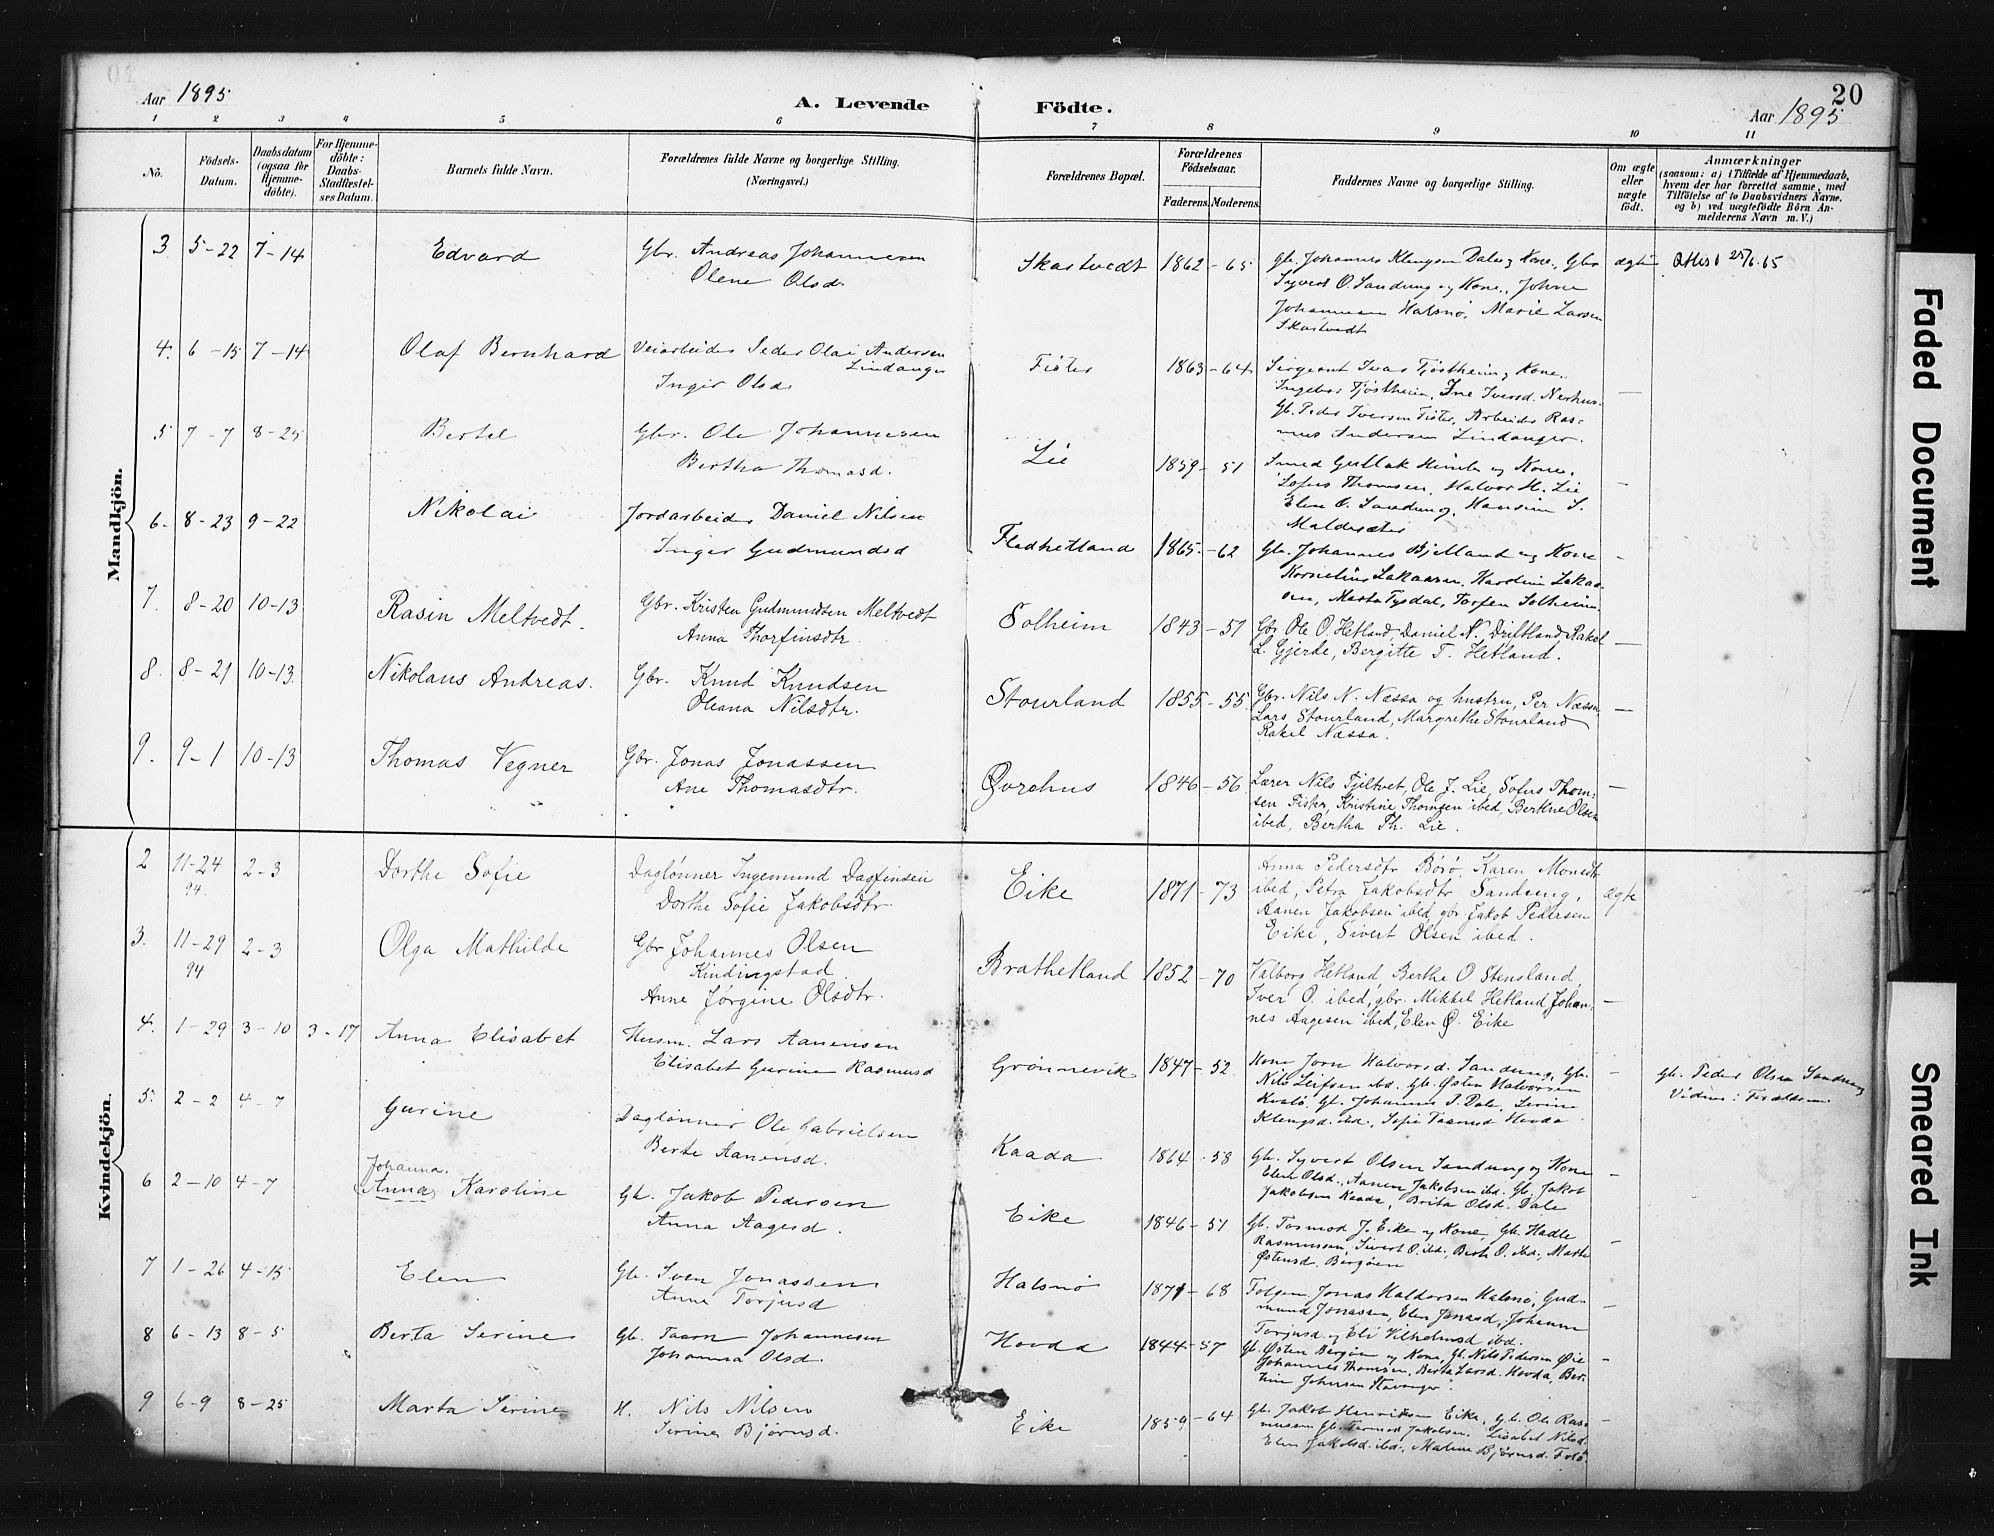 20
Aar 1895
A. Levende Födte.
Aar 1895
1 2 3 4 5 6 7 8 9 10 11
No.
Födsels-Datum.
Daabsdatum (ogsaa for Hjemme-döbte).
For Hjemme-döbte: Daabs-Stadfæstel-ses Datum.
Barnets fulde Navn.
Forældrenes fulde Navne og borgerlige Stilling. (Næringsvei.)
Forældrenes Bopæl.
Forældrenes Födselsaar.
Faderens. Moderens.
Faddernes Navne og borgerlige Stilling.
Om ægte eller uægte födt.
Anmærkninger
(saasom: a) i Tilfælde af Hjemmedaab,
hvem der har forrettet samme, med
Tilföielse af to Daabsvidners Navne.
og b) ved uægtefödte Börn An-
melderens Navn m. V.)
Mandkjön.
3 5-22 7-14 Edvard Gbr. Andreas Johannesen Skartvedt 1862-65 Gb. Johannes Klengsen Dale og Kone, Gbr ægte Attest 25/6.65
Olene Olsd. Syvert O. Sandung og Kone, Johne
Johannesen Halsnø, Marie Larsen
Skartvedt
4. 6-15 7-14 Olaf Bernhard Veiarbeider Peder Olai Andersen Fister 1863-64 Sergeant Ivar Tjøstheim og Kone,
Lindanger
Inger Olsd. Ingebor Tjøstheim, Ine Iversd. Nerhus
Gb. Peder Iversen Fister, Arbeider Ras-
mus Andersen Lindanger.
5 7-7 8-25 Bertel Gbr. Ole Johannesen Lie 1859-51 Smed Gutlak Himle og Kone,
Bertha Thomasd. Sofus Thomsen, Halvor H. Lie
Elen O. Sandung, Hansine S.
Maldesæter
6. 8-23 9-22 Nikolai Jordarbeider Daniel Nilsen Fledhetland 1865-62 Gb. Johannes Bjelland og Kone
Inger Gudmundsd Kornelius Sakasen, Karoline Sakas-
sen, Marta Tysdal, Torfen Solheim.
7. 8-20 10-13 Rasin Meltvedt. Gbr. Kristen Gudmundsen Meltvedt Solheim 1843-51 Gbr Ole O. Hetland, Daniel N. Driftland, Rakel —
Anna Thorfinsdtr. L. Gjerde, Bergitte T. Hetland.
8. 8-21 10-13 Nikolaus Andreas. Gbr. Knud Knudsen Stourland 1855-55 Gbr. Nils N. Næssa og hustru, Per Næssa, —
Oleana Nilsdtr. Lars Stourland, Margrethe Stourland
Rakel Næssa.
9. 9-1 10-13 Thomas Vegner Gbr. Jonas Jonassen Qvrehus 1846-56 Lærer Nils Tjeltvet, Ole J. Lie, Sofus Thom- —
Ane Thomasdtr. sen Fister, Kristine Thomsen ibed, Berthe Olsen
ibed, Bertha Th. Lie.
Kvindekjön.
2 11-24 94. 2-3 Dorthe Sofie Dagløner Ingemund Dagfinsen Eike 1871-73 Anna Pedersdtr Børø, Karen Monsdt ægte
Dorthe Sofie Jakobsdtr. ibed, Petra Jakobsdtr Sandung,
Aanen Jakobsen ibed, gbr Jakob Pedersen
Eike, Sivert Olsen ibed.
3. 11-29 94 2-3 Olga Mathilde Gbr Johannes Olsen Brathetland 1852-70 Valborg Hetland, Berthe O Stensland, —
Kindingstad
Anne Jørgine Olsdtr. Iver O. ibed, gbr. Mikkel Hetland, Johan-
nes Aagesen ibed, Elen Ø. Eike
4. 1-29 3-10 3-17 Anna Elisabet Husm. Lars Aanensen Grønnevik 1847-52 Kone Jorn Halvorsd. Sandung, Gb. — Gb. Peder Olsen Sandung
Elisabet Gurine Rasmusd Nils Leifsen ibd. Gb. Østen Halvorsen Vidner: Forældrene
Kvalø. Gb. Johannes S. Dale, Serine
Klengsd. ibd., Sofie Taaresd Hovda.
5. 2-2 4-7 Gurine Dagløner Ole Gabrielsen Kaada 1864-58 Gb. Syvert Olsen Sandung og Kone —
Berte Aanensd. Elen Olsd., Aanen Jakobsen ibd. Gb. Jakob
Jakobsen Kaada, Brita Olsd. Dale
6 2-10 4-7 Johanna. (Anna) Karoline Gb. Jakob Pedersen Eike 1846-51 Gb. Tormod J. Eike og Kone Gb. Hadle —
Anna Aagesd. Rasmussen, Sivert O. ibd., Berte O. ibd., Marthe
Østensd. Bergøen
7 1-26 4-15 Elen Gb. Sven Jonassen Halsnø 1871-68 Folgem. Jonas Haldorsen Halsnø, Gud- —
Anne Torjusd mund Jonassen, Elen Jonasd, Johanne
Torjusd. og Eli Vilhelmsd ibd.
8 6-13 8-5 Berta Serine Gb. Taarn Johannesen Hovda 1844-57 Gb. Østen Bergøen og Kone, Gb. Nils Pedersen Øie —
Johanna Olsd. Johannes Thomsen, Berta Larsd. Hovda, Ber-
tine Johnsen Stavanger.
9 6-9 8-25 Marta Serine H. Nils Nilsen Eike 1859-64 Gb. Jakob Henriksen Eike, Gb. Ole Ras- —
Serine Bjørnsd. mussen, Gb. Tormod Jakobsen, Lisabet Nilsd.
Elen Jakobsd. ibd., Malene Bjørnsd. Folø
Faded Document
Smeared Ink